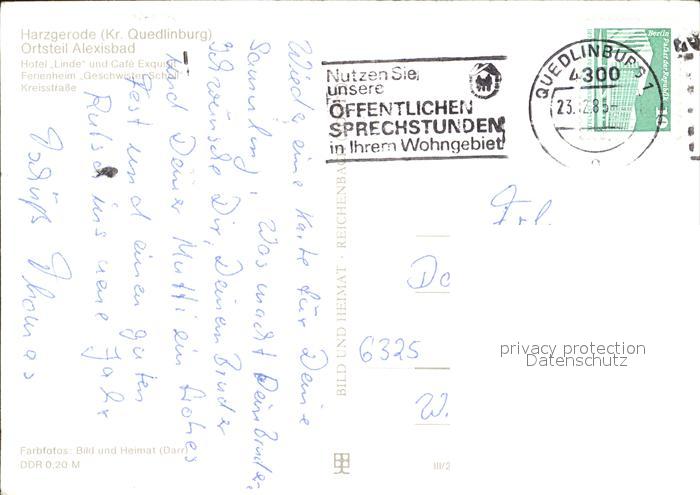 Harzgerode (Kr. Quedlinburg)
Ortsteil Alexisbad
Hotel „Linde" und Café Exquisit
Ferienheim „Geschwister Scholl"
Kreisstraße
Nutzen Sie,
unsere
ÖFFENTLICHEN
SPRECHSTUNDEN
in Ihrem Wohngebiet!
QUEDLINBURG 1
4300
23.12.85
Berlin Palast der Republik
10
Wieder eine Karte für Deine
Sammlung. Was macht Dein Bruder,
ich wünsche Dir, Deinen Bruder
und Deiner Mutti ein frohes
Fest und einen guten
Rutsch ins neue Jahr
Thomas
BILD UND HEIMAT · REICHENBACH
Frl.
6325
W.
privacy protection
Datenschutz
Farbfotos: Bild und Heimat (Darr)
DDR 0,20 M
III/2